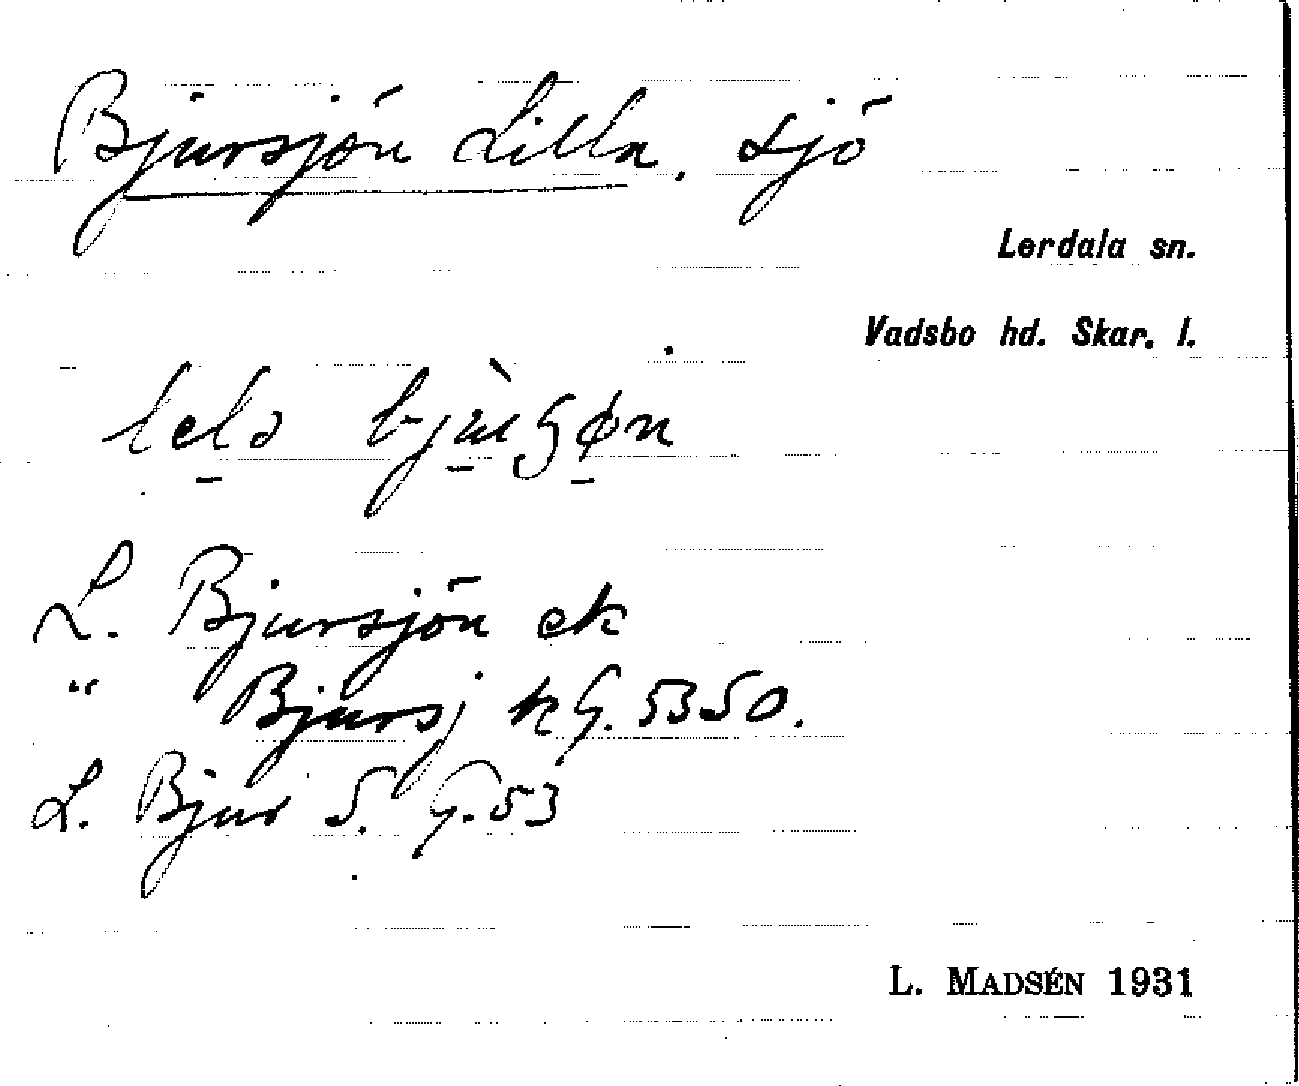 Bjursjön Lilla, sjö
Lerdala sn.
Vadsbo hd. Skar. l.
L. Bjursjön ek
" Bjursj kG. 5350.
L. Bjur S. G. 53
L. MADSÉN 1931